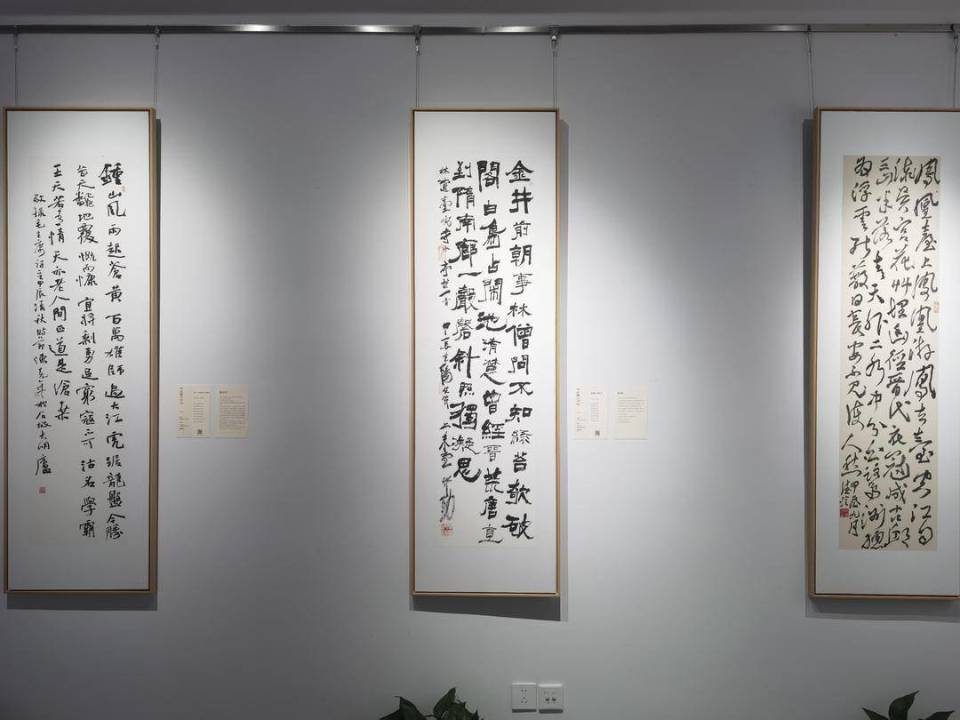 鍾山风雨起蒼黃百萬雄師過大江虎踞龍盤今勝
昔天翻地覆慨而慷宜將剩勇追窮寇不可沽名學霸
王天若有情天亦老人間正道是滄桑
敬錄毛主席詩
金井前朝事林僧問不知綠苔欹破
閣白鳥占閑池清楚曾經晉荒唐直
到隋南廊一聲磬斜照獨凝思
林寬臺城寺
鳳凰臺上鳳凰游鳳去臺空江自
流吳宮花艸埋幽徑晉代衣冠成古邱
三山半落青天外二水中分白鷺洲總
為浮雲能蔽日長安不見使人愁
甲辰九月